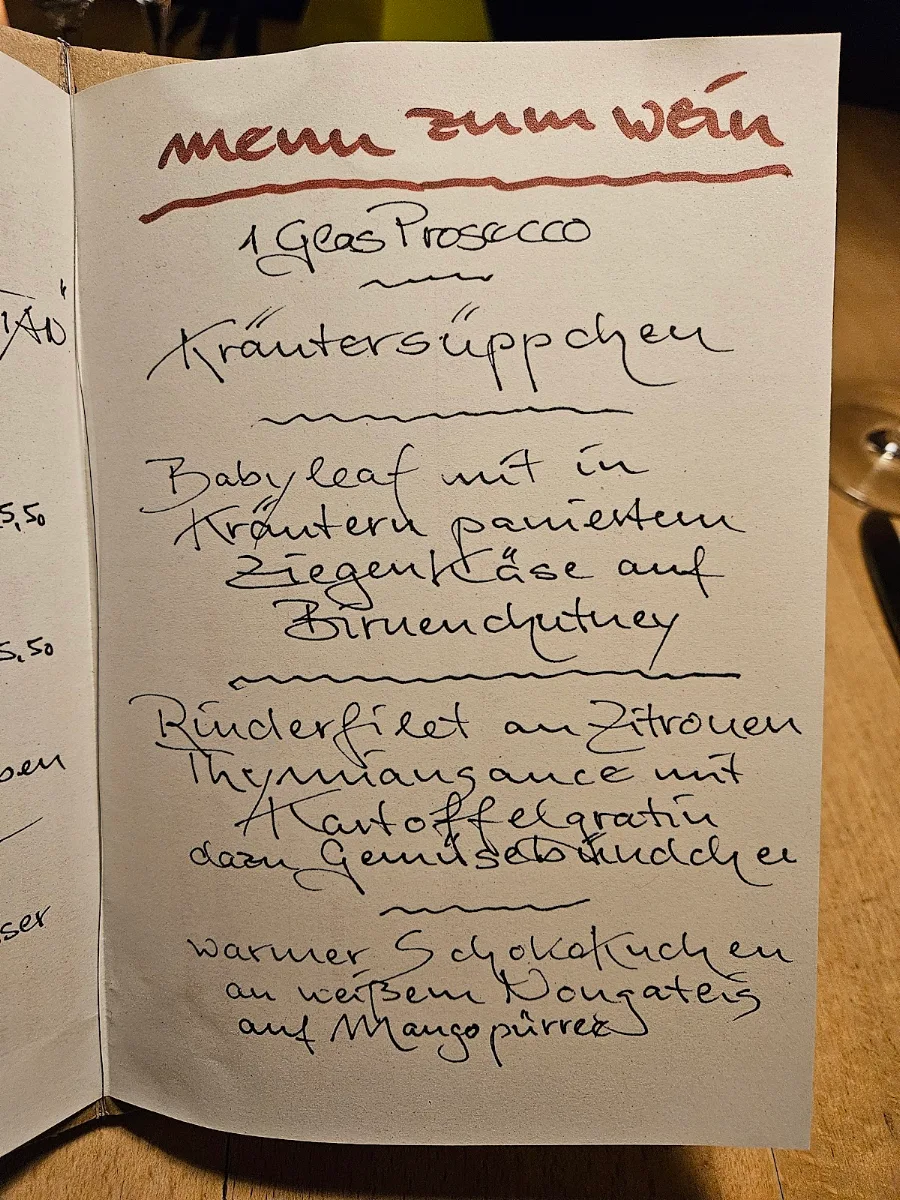 menu zum wein
1 Glas Prosecco
Kräutersüppchen
Babyleaf mit in
Kräutern paniertem
Ziegenkäse auf
Birnenchutney
Rinderfilet an Zitronen
Thymiansauce mit
Kartoffelgratin
dazu Gemüsebündchen
warmer Schokokuchen
an weißem Nougateis
auf Mangopürree
5,50
5,50